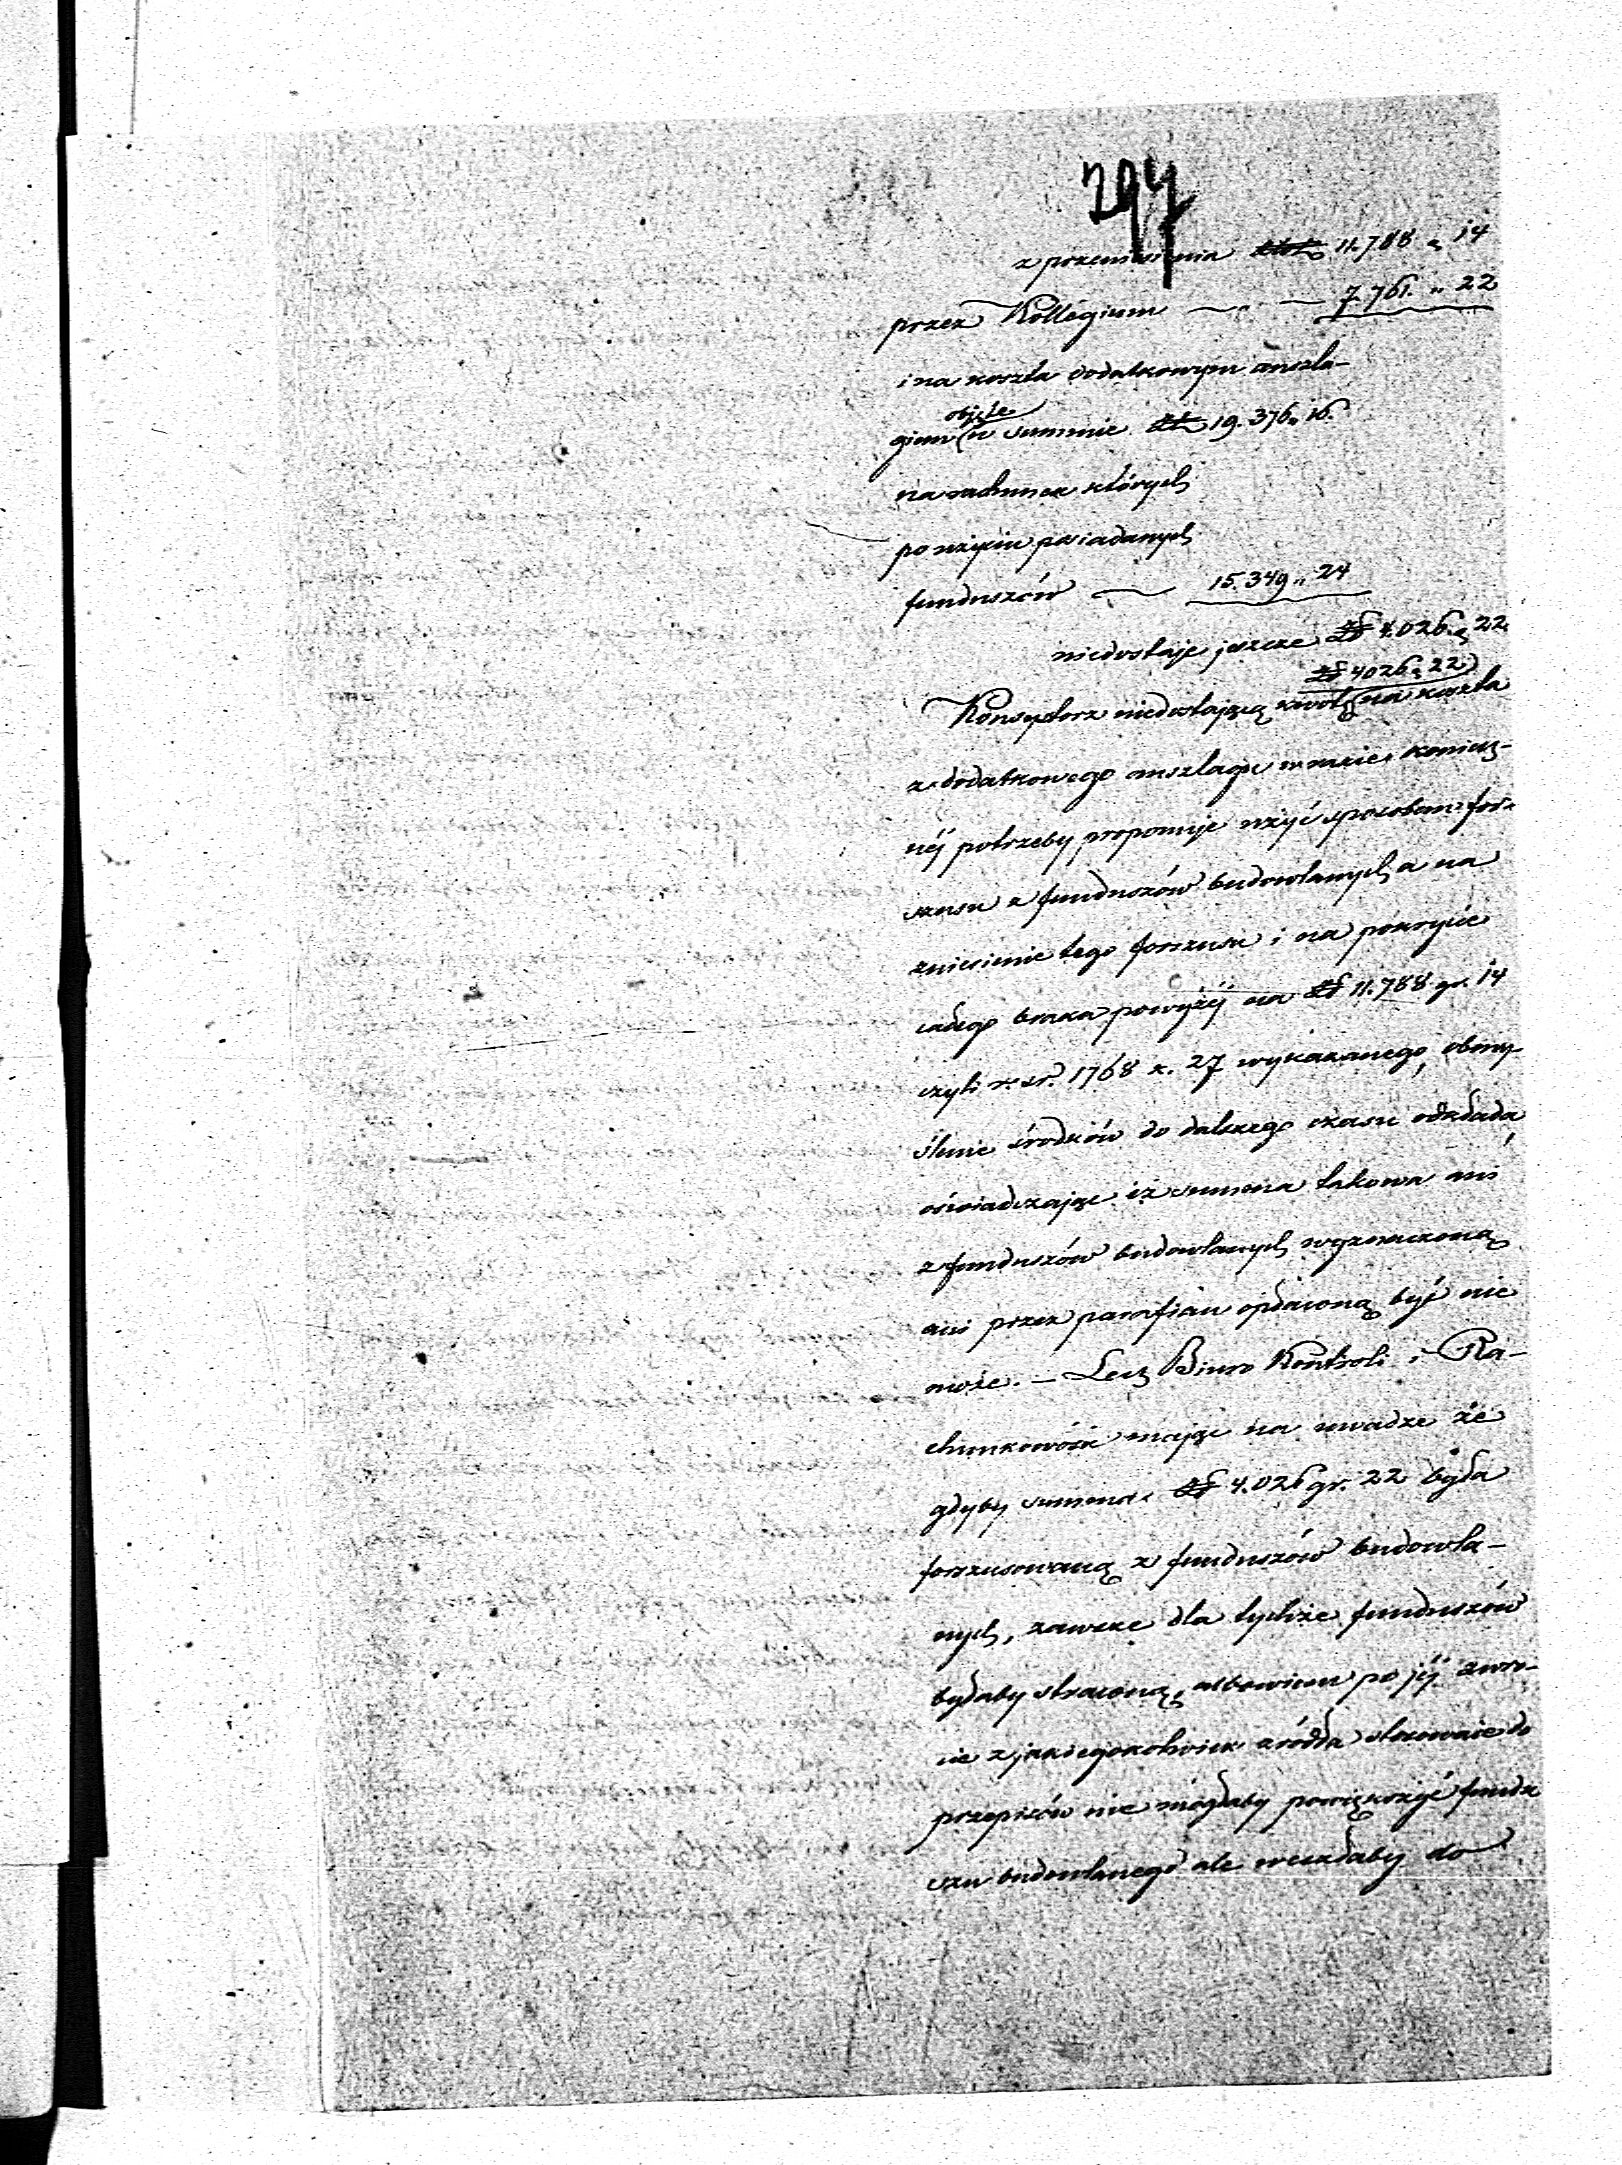 297
z przeniesienia złot 11.788 „ 14
przez Kollegium — „ — 7.761. „ 22
i na koszta dodatkowym anszla-
giem (objęte w summie zł 19.376 „ 16.
na rachunek których
po użyciu posiadanych
funduszów — 15.349 „ 24
niedostaje jeszcze zł 4.026 „ 22
Konsystorz niedostającą kwotę (zł 4026 „ 22) na koszta
z dodatkowego anszlagu w razie koniecz-
néj potrzeby proponuje użyć sposobem for-
szusu z funduszów budowlanych a na
zniesienie tego forszusu i na pokrycie
całego braku powyżéj na zł 11.788 gr. 14
czyli r. sr. 1768 k. 27 wykazanego, obmy-
ślenie środków do dalszego czasu odkłada
oświadczając iż summa takowa ani
z funduszów budowlanych wyznaczoną
ani przez parafian opłaconą być nie
może. — Lecz Biuro Kontroli i Ra-
chunkowości mając na uwadze że
gdyby summa zł 4.026 gr. 22 była
forszusowaną z funduszów budowla-
nych, zawsze dla tychże funduszów
byłaby straconą, albowiem po jéj zwro-
cie z jakiegokolwiek źródła stosownie do
przepisów nie mogłaby powiększyć fundu
szu budowlanego ale weszłaby do